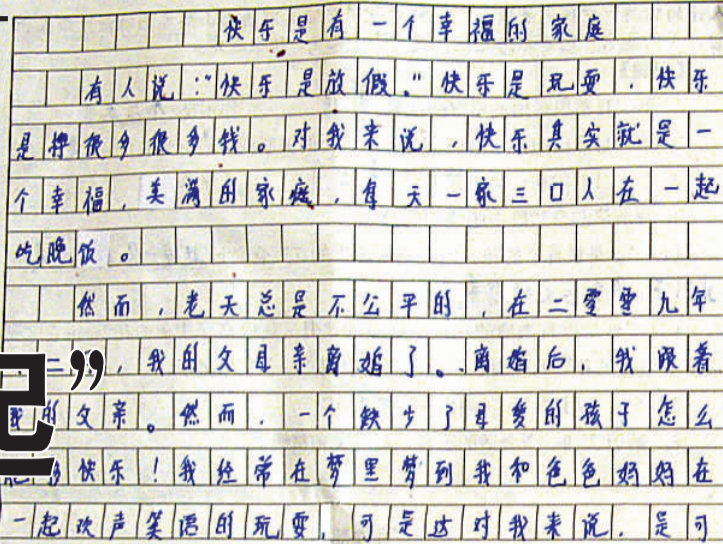 快乐是有一个幸福的家庭
有人说："快乐是放假。"快乐是玩耍，快乐
是挣很多很多钱。对我来说，快乐其实就是一
个幸福，美满的家庭，每天一家三口人在一起
吃晚饭。
然而，老天总是不公平的，在二零零九年
二，我的父母亲离婚了。离婚后，我跟着
我的父亲。然而，一个缺少了母爱的孩子怎么
够快乐！我经常在梦里梦到我和爸爸妈妈在
一起欢声笑语的玩耍，可是这对我来说，是可
记”